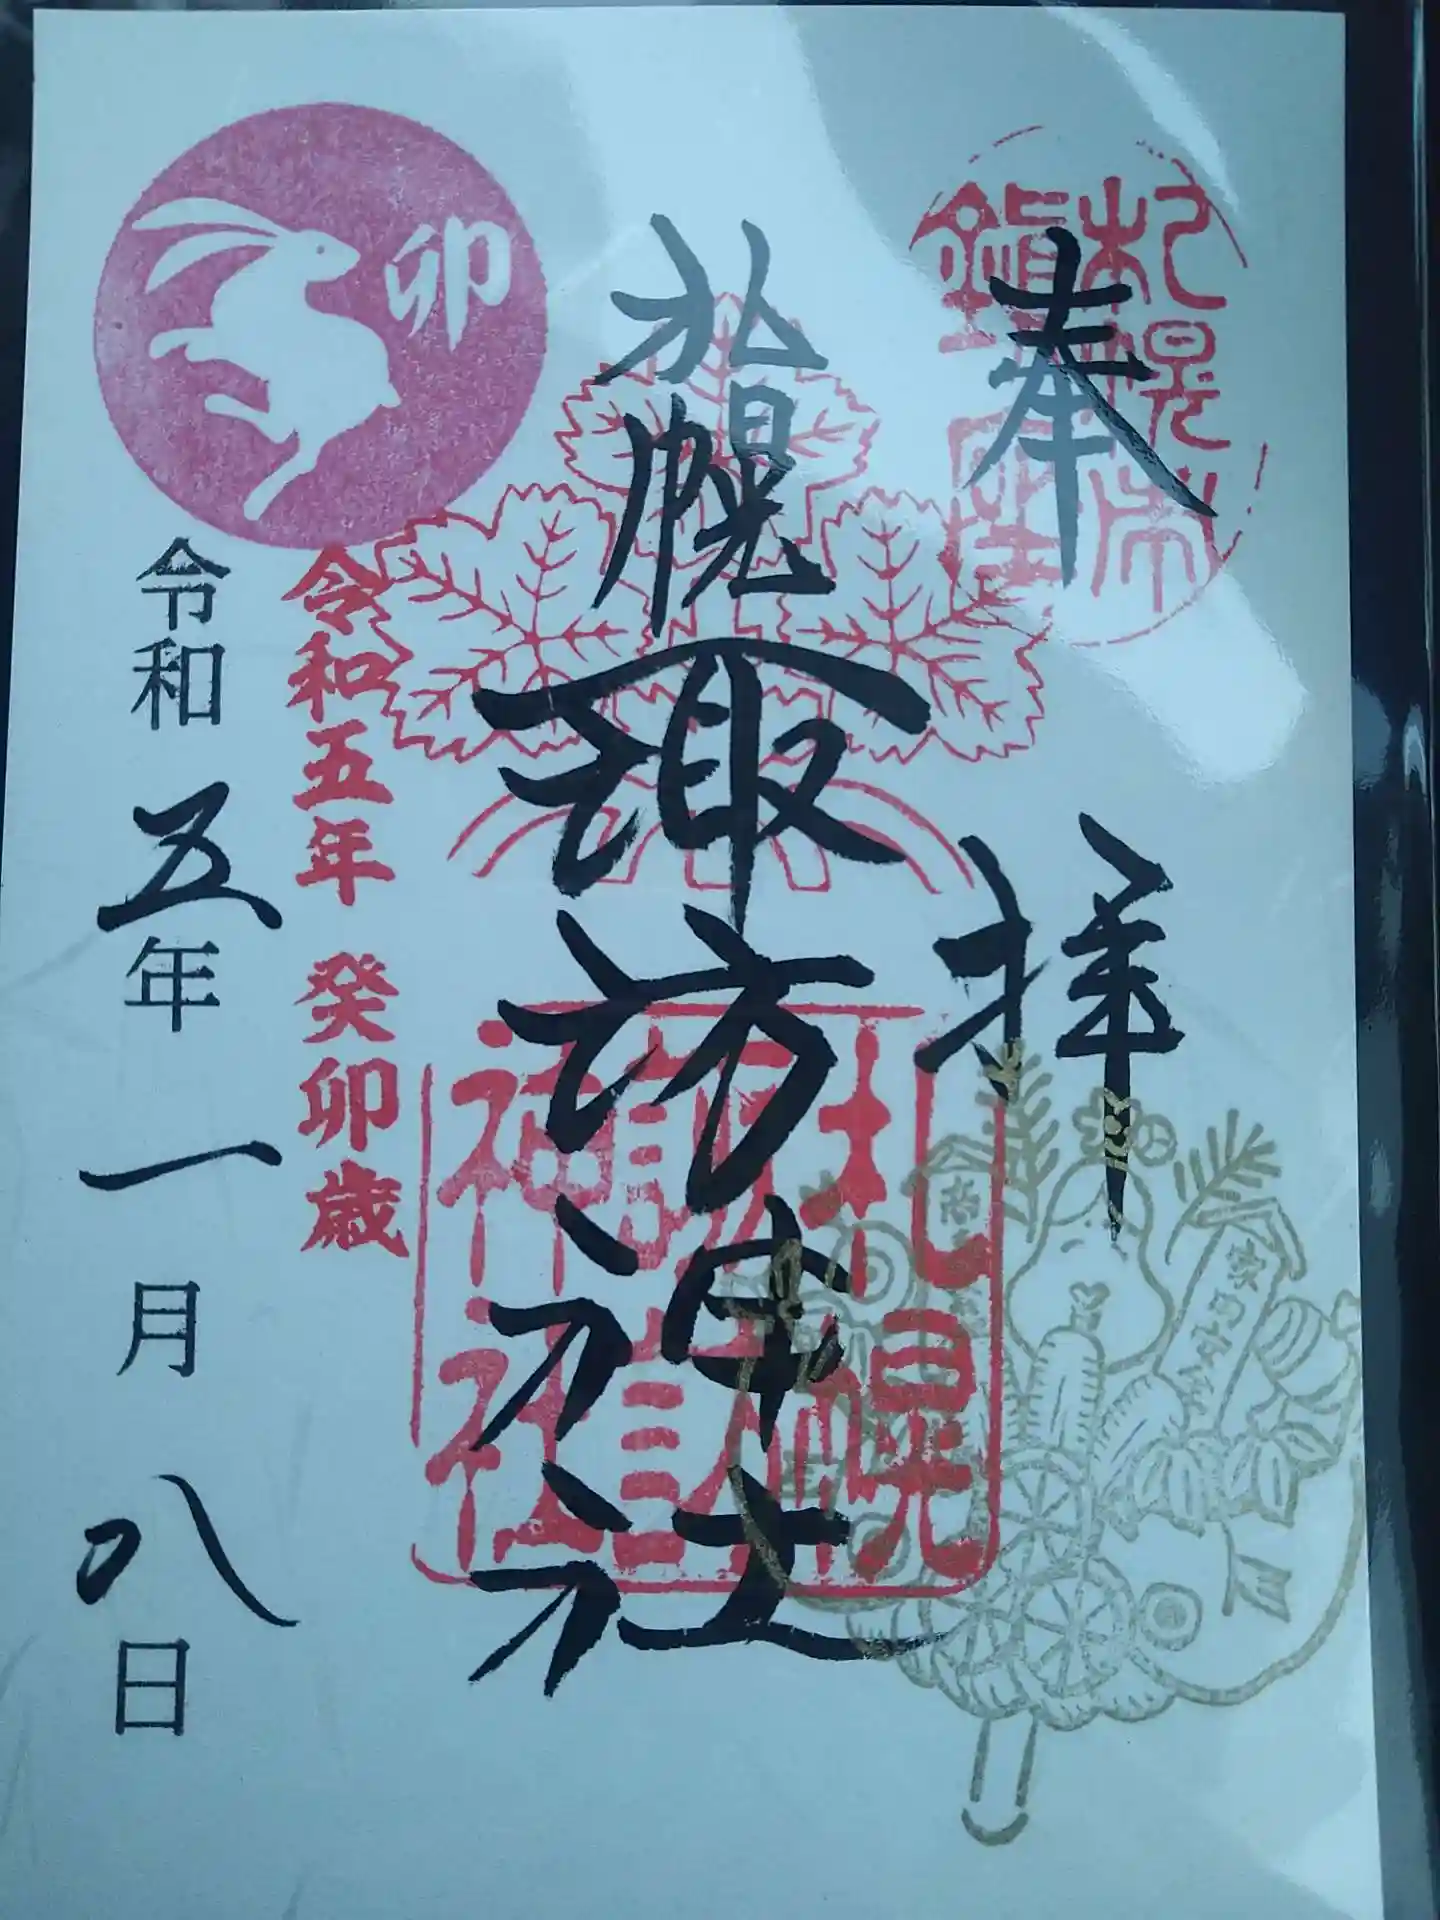 奉拝
札幌諏訪神社
札幌市
鎮座
札幌
諏訪
神社
卯
令和五年 癸卯歳
令和五年一月八日